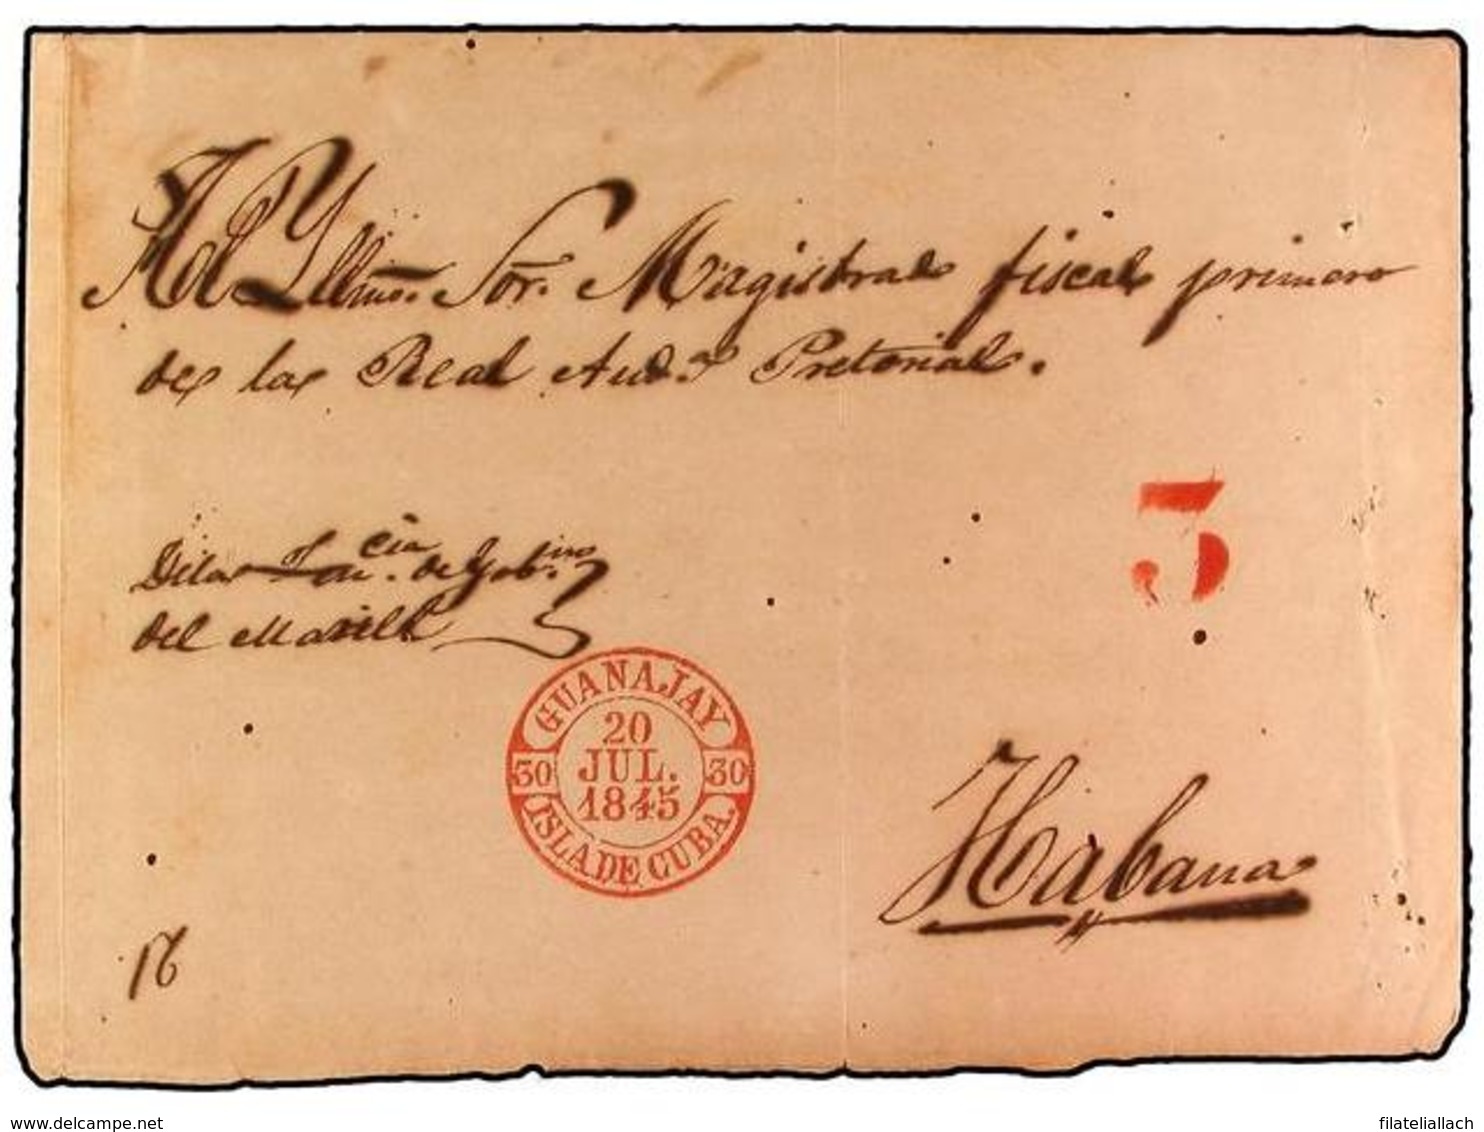 Al Yllmo. Sor. Magistral fiscal primero
de la Real Aud.a Pretorial.
3
De la Ten.cia de Gob.no
del Mariel
GUANAJAY
20
JUL.
1845
30 30
ISLA DE CUBA.
Habana
16
www.delcampe.net
filateliallach